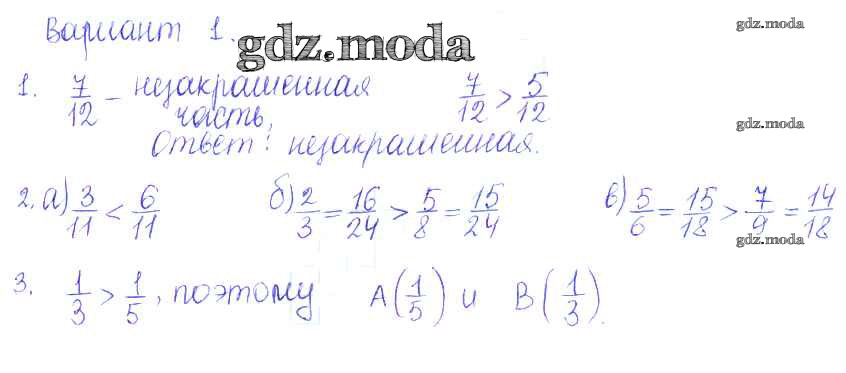 Вариант 1.
gdz.moda
1. 7/12 – незакрашенная 7/12 > 5/12
часть,
gdz.moda
Ответ: незакрашенная.
2. а) 3/11 < 6/11 б) 2/3 = 16/24 > 5/8 = 15/24 в) 5/6 = 15/18 > 7/9 = 14/18
gdz.moda
3. 1/3 > 1/5, поэтому A(1/5) и B(1/3).
gdz.moda